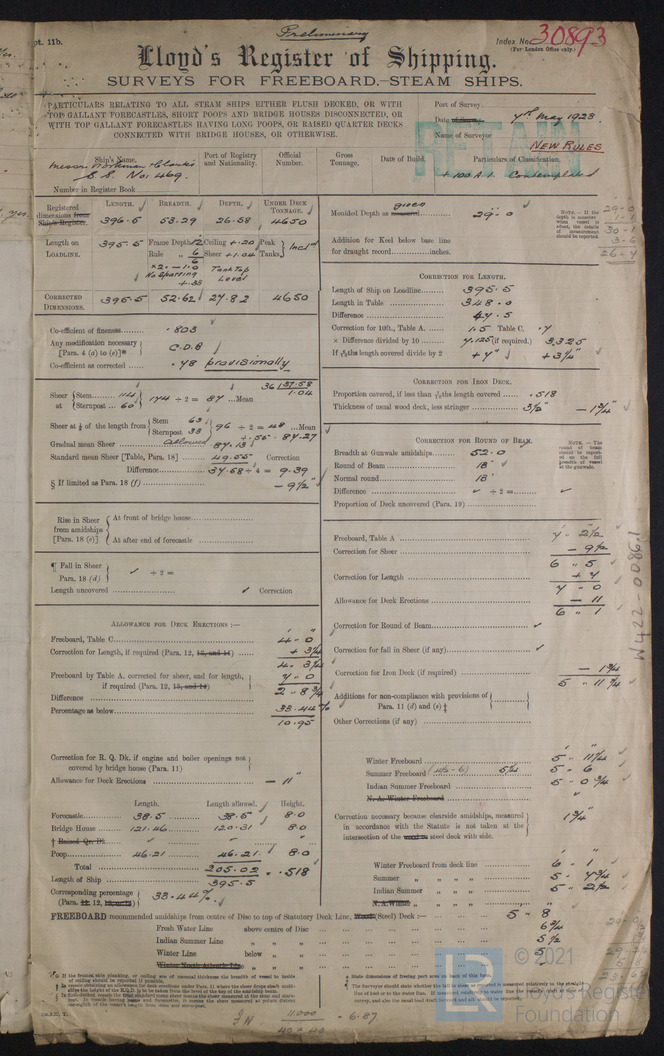 Rpt. 11b.
Preliminary
Index No. 30893
(For London Office only.)
Lloyd's Register of Shipping.
SURVEYS FOR FREEBOARD.—STEAM SHIPS.
PARTICULARS RELATING TO ALL STEAM SHIPS EITHER FLUSH DECKED, OR WITH
TOP GALLANT FORECASTLES, SHORT POOPS AND BRIDGE HOUSES DISCONNECTED, OR
WITH TOP GALLANT FORECASTLES HAVING LONG POOPS, OR RAISED QUARTER DECKS
CONNECTED WITH BRIDGE HOUSES, OR OTHERWISE.
Port of Survey
Date of Survey 7th May 1923
Name of Surveyor
RETAIN
NEW RULES
Ship's Name.
Port of Registry and Nationality.
Official Number.
Gross Tonnage.
Date of Build.
Particulars of Classification.
Messrs Workman Clarks
S.S. No: 469.
+ 100 A.1. Contemplated
Number in Register Book
Registered dimensions from Ship's Register.
LENGTH. BREADTH. DEPTH. UNDER DECK TONNAGE.
396.5 53.29 26.58 4650
Length on LOADLINE. 395.5
Frame Depth
Rule
No Sparring
Ceiling + .20
Sheer + 1.04
Tank Top Level
Peak Tanks Incld
CORRECTED DIMENSIONS. 395.5 52.62 27.82 4650
Co-efficient of fineness .803
Any modification necessary [Para. 4 (a) to (e)]* C.D.B
Co-efficient as corrected .78 provisionally
Sheer at Stem 114
Sternpost 60
174 ÷ 2 = 87 ...Mean
36 | 37.58
1.04
Sheer at ⅛ of the length from Stem 63
Sternpost 33
96 ÷ 2 = 48 ...Mean
Gradual mean Sheer allowed
87.27
Standard mean Sheer [Table, Para. 18] 49.55 Correction
Difference 37.58 ÷ 4 = 9.39
§ If limited as Para. 18 (f) − 9½"
Rise in Sheer from amidships [Para. 18 (e)]
At front of bridge house
At after end of forecastle
¶ Fall in Sheer Para. 18 (d) ✓ ÷ 2 =
Length uncovered ✓ Correction
ALLOWANCE FOR DECK ERECTIONS :—
Freeboard, Table C 4 - 0
Correction for Length, if required (Para. 12, 13, and 14) + 3¾
4. 3¾
Freeboard by Table A, corrected for sheer, and for length, if required (Para. 12, 13, and 14) 7 - 0
Difference 2 - 8¾
Percentage as below 33.44 %
10.95
Correction for R. Q. Dk. if engine and boiler openings not covered by bridge house (Para. 11)
Allowance for Deck Erections − 11"
Length. Length allowed. Height.
Forecastle 38.5 38.5 8.0
Bridge House 121.46 120.31 8.0
† Raised Qr. Dk.
Poop 46.21 46.21 8.0
Total 205.02 = .518
Length of Ship 395.5
Corresponding percentage (Para. 12, 13, or 14) 33.44 %
Moulded Depth as measured given 29 - 0
Addition for Keel below base line for draught record inches.
CORRECTION FOR LENGTH.
Length of Ship on Loadline 395.5
Length in Table 348.0
Difference 47.5
Correction for 10ft., Table A. 1.5 Table C. .7
× Difference divided by 10 7.125 (if required.) 3.325
If ⁶⁄₁₀ths length covered divide by 2 + 7" + 3¾"
CORRECTION FOR IRON DECK.
Proportion covered, if less than ⁷⁄₁₀ths length covered .518
Thickness of usual wood deck, less stringer 3½" − 1¾"
CORRECTION FOR ROUND OF BEAM.
Breadth at Gunwale amidships 52.0
Round of Beam 13"
Normal round 13"
Difference ✓ ÷ 2 = ✓
Proportion of Deck uncovered (Para. 19)
Freeboard, Table A 7 - 2½
Correction for Sheer − 9½
6 " 5
Correction for Length + 7
7 - 0
Allowance for Deck Erections − 11
6 " 1
Correction for Round of Beam ✓
Correction for fall in Sheer (if any) ✓
Correction for Iron Deck (if required) − 1¾
5 " 11¼
Additions for non-compliance with provisions of Para. 11 (d) and (e) ‡
Other Corrections (if any)
Winter Freeboard 5 - 11¼
Summer Freeboard 5¼ 5 - 6
Indian Summer Freeboard 5 - 0¾
N. A. Winter Freeboard
Correction necessary because clearside amidships, measured in accordance with the Statute is not taken at the intersection of the wood or steel deck with side. 1¾"
Winter Freeboard from deck line 6 - 1
Summer " " " " 5 - 7¾
Indian Summer " " " " 5 - 2½
N. A. Winter " " " "
FREEBOARD recommended amidships from centre of Disc to top of Statutory Deck Line, Wood (Steel) Deck :— 5 " 8
Fresh Water Line above centre of Disc 6¾
Indian Summer Line " " 5½
Winter Line below "
Winter North Atlantic Line " "
W422-0086.1
© 2021
LR
Lloyd's Register
Foundation